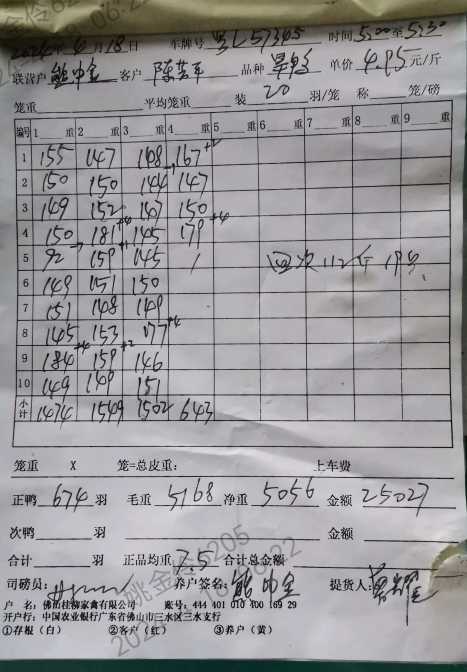 2024年4月18日 车牌号 时间 5:00至5:30
联营户 熊中全 客户 品种 单价 4.95元/斤
笼重 平均笼重 装 20 羽/笼 称 笼/磅
编号 1 重 2 重 3 重 4 重 5 重 6 重 7 重 8 重 9 重
1 155 147 148 167 +2
2 150 150 144 147
3 149 152 147 150
4 150 181 +4 145 179 +4
5 92 159 +1 145 /
6 149 151 150 四次112斤 19只
7 151 148 149
8 145 153 177 +4
9 184 +4 159 +2 146
10 149 149 151
小计 1474 1549 1502 643
笼重 X 笼=总皮重: 上车费
正鸭 674 羽 毛重 5168 净重 5056 金额 25027
次鸭 羽 金额
合计 羽 正品均重 7.5 合计总金额
司磅员: 养户签名: 熊中全 提货人:
户 名: 佛山桂柳家禽有限公司 账号: 444 401 010 400 169 29
开户行: 中国农业银行广东省佛山市三水区三水支行
①存根(白) ②客户(红) ③养户(黄)